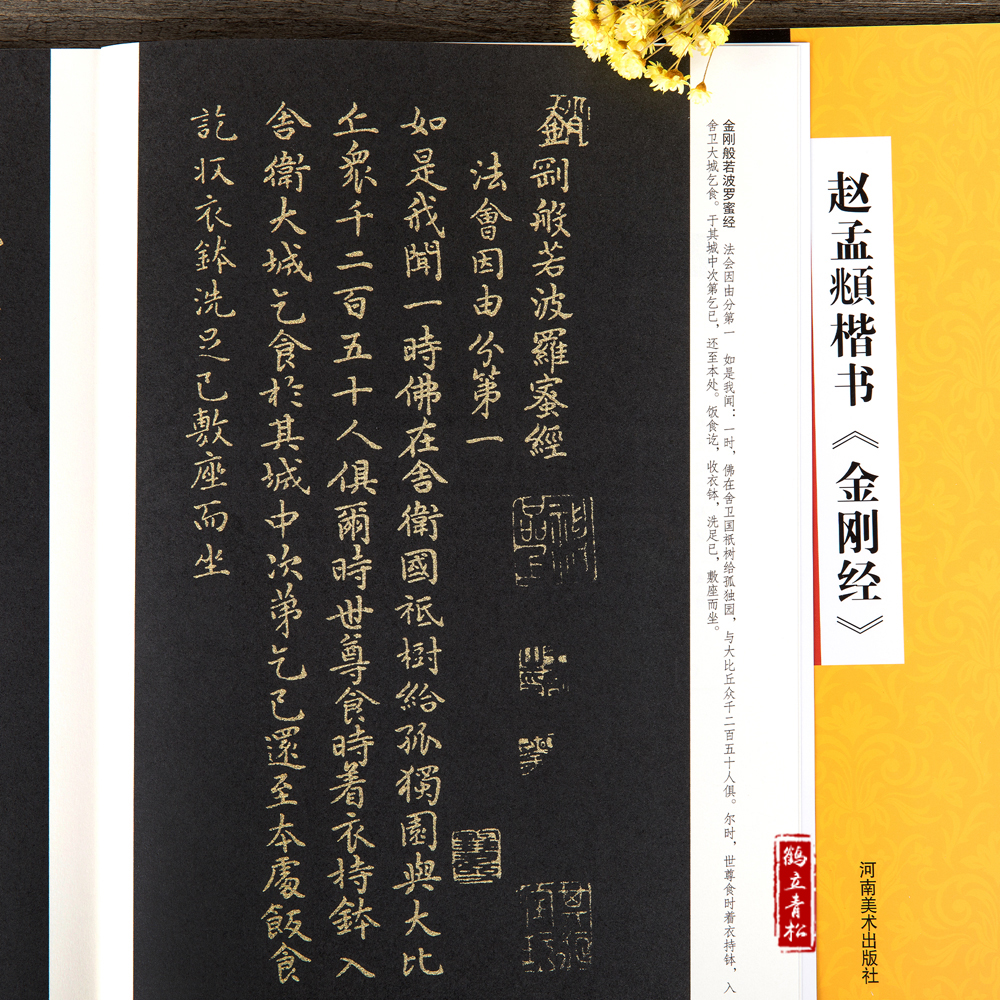 赵孟頫楷书《金刚经》
河南美术出版社
鹤立青松
金刚般若波罗蜜经 法会因由分第一 如是我闻：一时，佛在舍卫国祇树给孤独园，与大比丘众千二百五十人俱。尔时，世尊食时着衣持钵，入
舍卫大城乞食。于其城中次第乞已，还至本处。饭食讫，收衣钵，洗足已，敷座而坐。
金剛般若波羅蜜經
法會因由分第一
如是我聞一時佛在舍衛國祇樹給孤獨園與大比
丘眾千二百五十人俱爾時世尊食時着衣持鉢入
舍衛大城乞食於其城中次第乞已還至本處飯食
訖收衣鉢洗足已敷座而坐